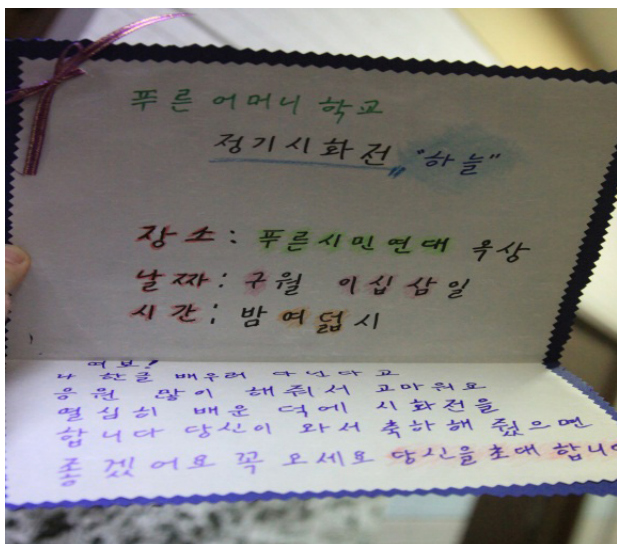 푸른 어머니 학교
정기시화전 "하늘"
장소: 푸른시민연대 옥상
날짜: 구월 이십삼일
시간: 밤 여덟 시
여보!
나 한글 배우러 다닌다고
응원 많이 해줘서 고마워요
열심히 배운 덕에 시화전을
합니다 당신이 와서 축하해 줬으면
좋겠어요 꼭 오세요 당신을 초대 합니다